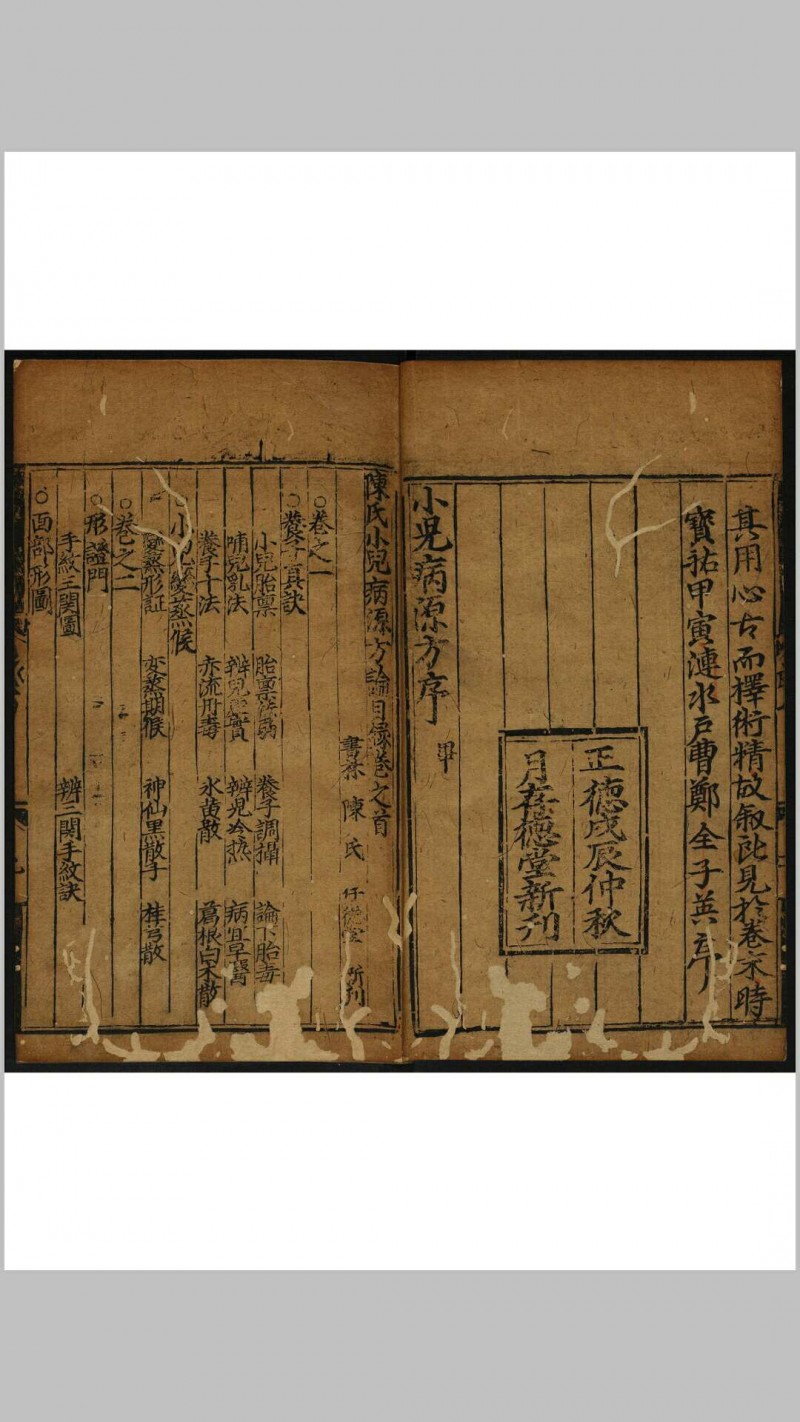 其用心古而擇術精故叙所見於卷末時
寳祐甲寅漣水戸曹鄭全子英序
正德戊辰仲秋
月存德堂新刋
小児病源方序畢
陳氏小兒病源方論目録卷之首
書林 陳氏 存德堂 新刋
○卷之一
○養子真訣
小兒胎禀 胎禀 養子調攝 論下胎毒
哺兒乳法 辨兒實 辨児冷热 病宜早醫
養子十法 赤流丹毒 氷黄散 葛根白术散
○小児變蒸候
變蒸形証 変蒸期候 神仙黒散子 桂
○卷之二
○形證門
手紋三関圖 辨三関手紋訣
○面部形圖